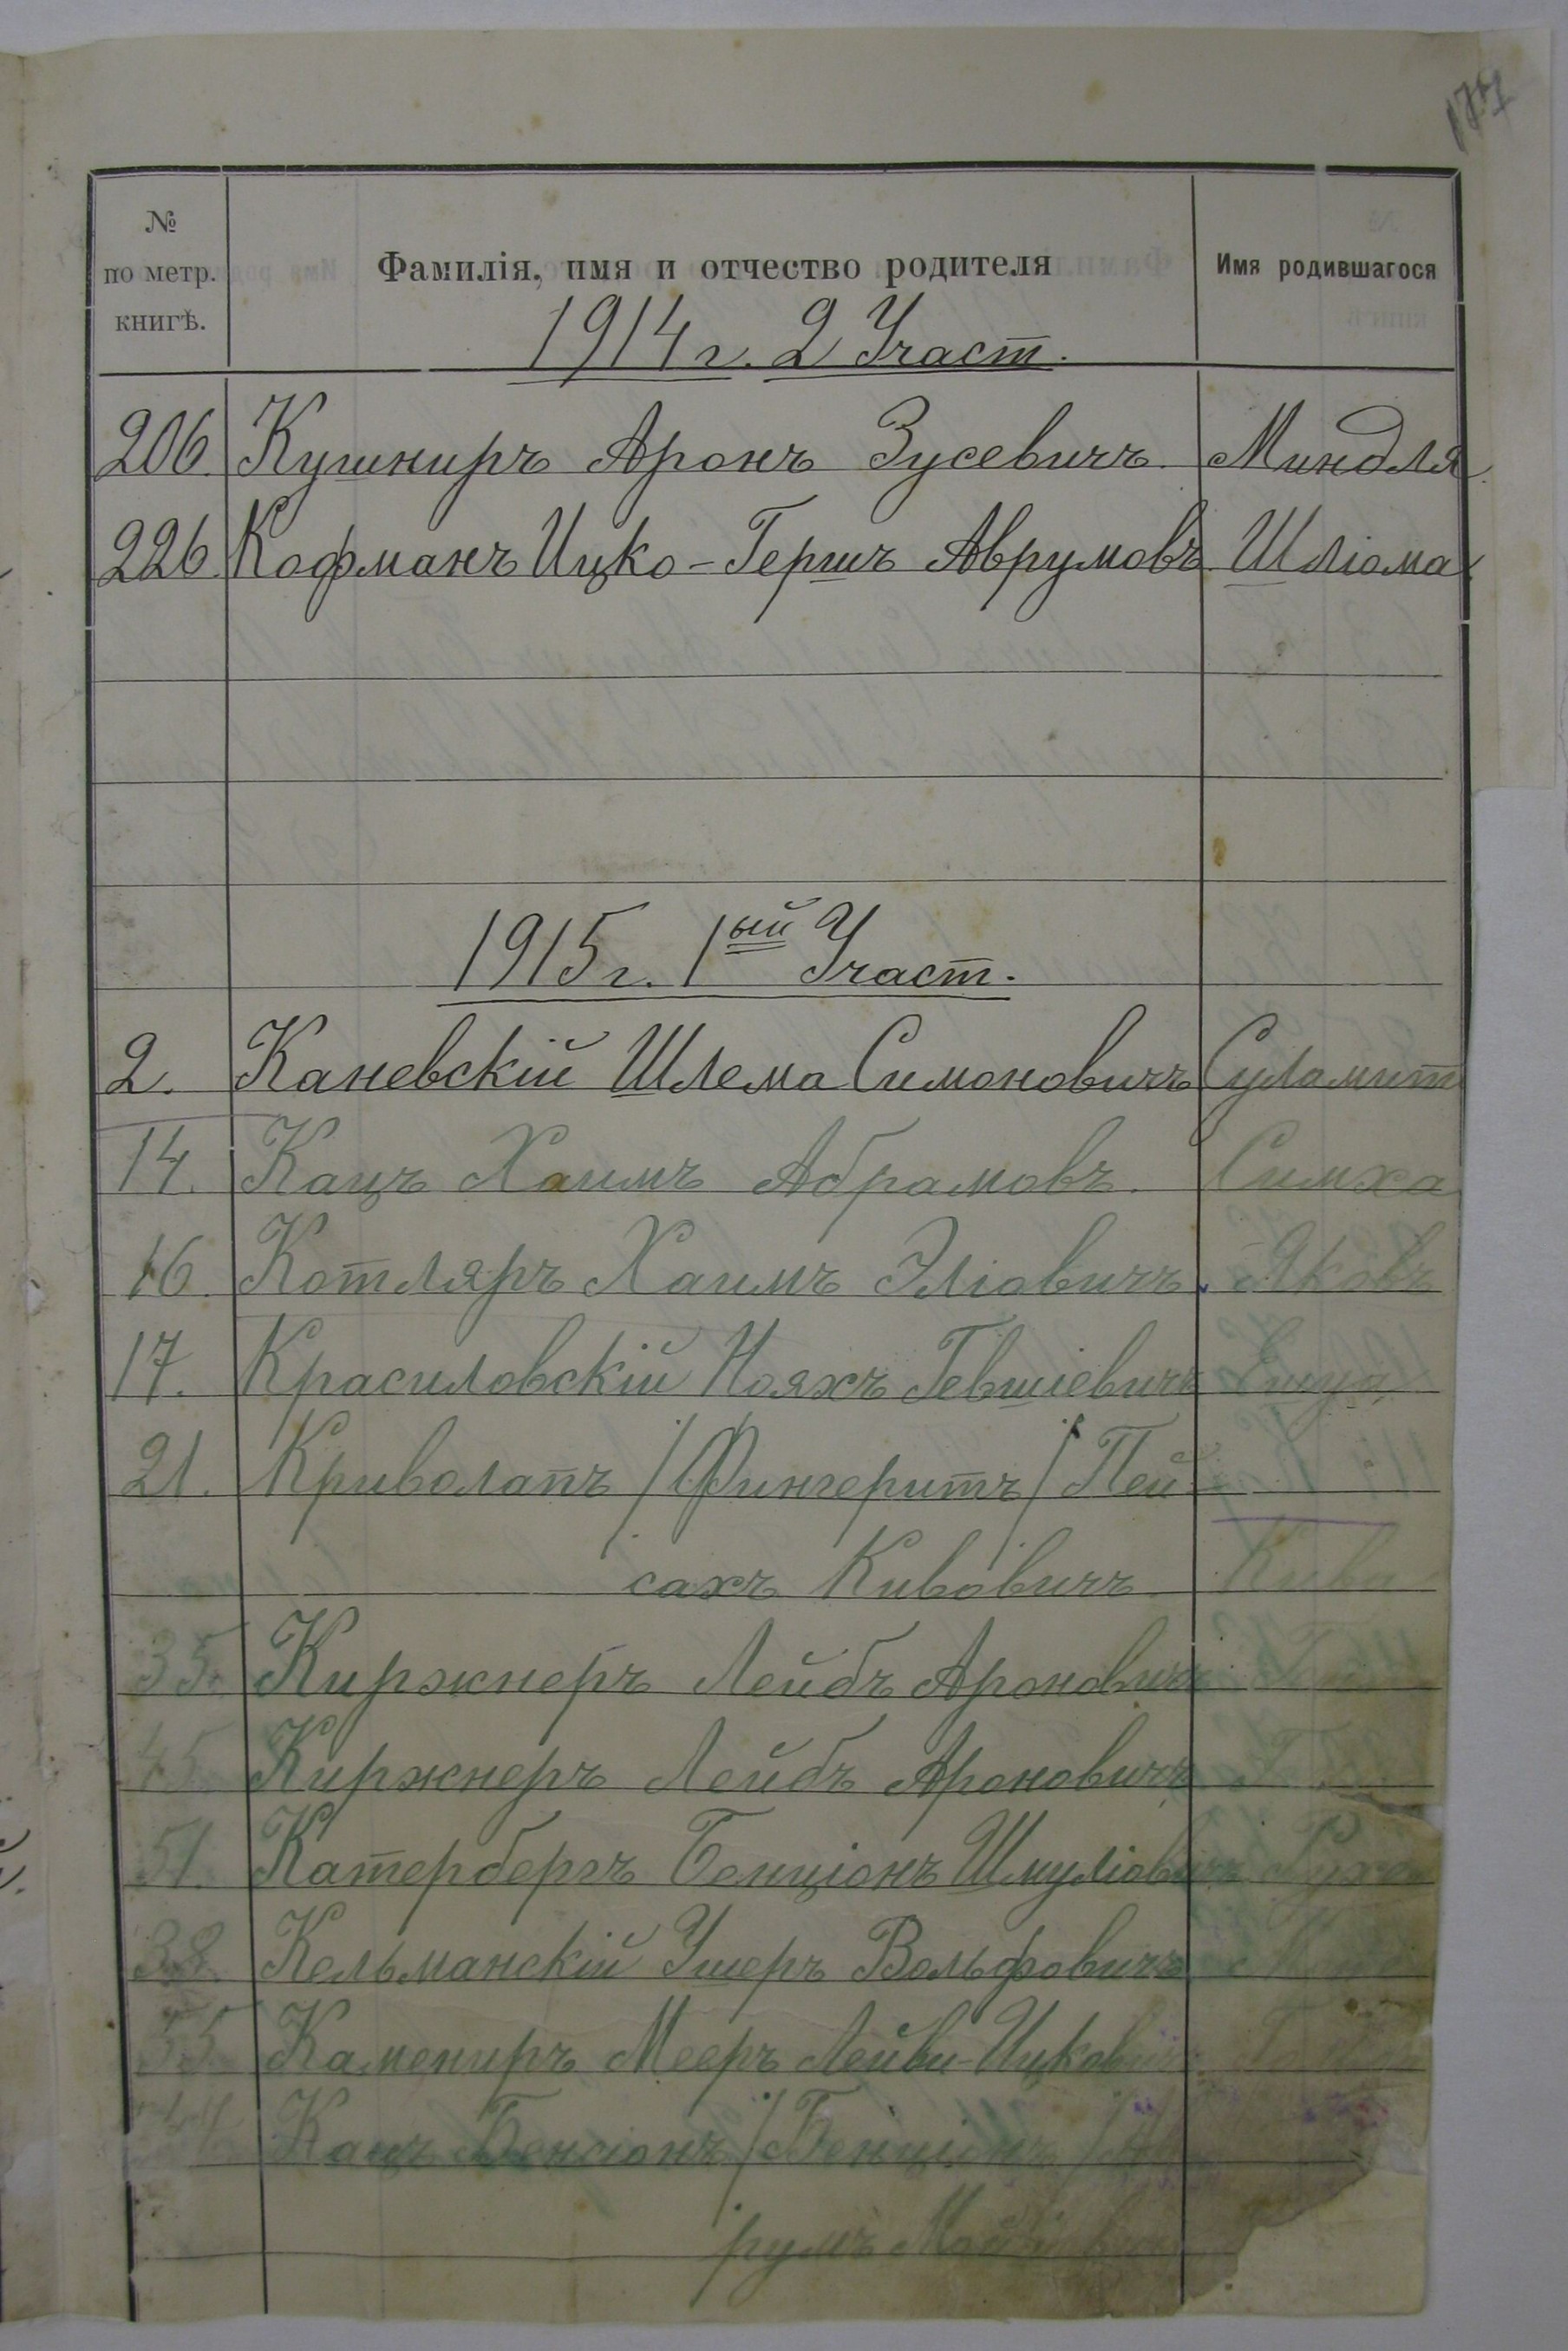 177
№ по метр. книгѣ.
Фамилія, имя и отчество родителя
Имя родившагося
1914 г. 2 Участ.
206. Кушниръ Аронъ Зусевичъ. Миндля.
226. Кофманъ Ицко-Гершъ Аврумовъ. Шліома.
1915 г. 1ый Участ.
2. Каневскій Шлема Симоновичъ Суламит
14. Кацъ Хаимъ Абрамовъ. Симха
16. Котляръ Хаимъ Эліовичъ. Яковъ
17. Красиловскій Нояхъ Гевшіевичъ
21. Криволапъ /Фингеритъ/ Пей-
сахъ Кивовичъ Кива
35. Киржнеръ Лейбъ Ароновичъ
45. Киржнеръ Лейбъ Ароновичъ
51. Катербергъ Бенціонъ Шмуліовичъ
38. Кельманскій Ушеръ Вольфовичъ
55. Камениръ Мееръ Лейви-Ицкович
Кацъ Бенсіонъ /Бенціонъ/ Ав
румъ